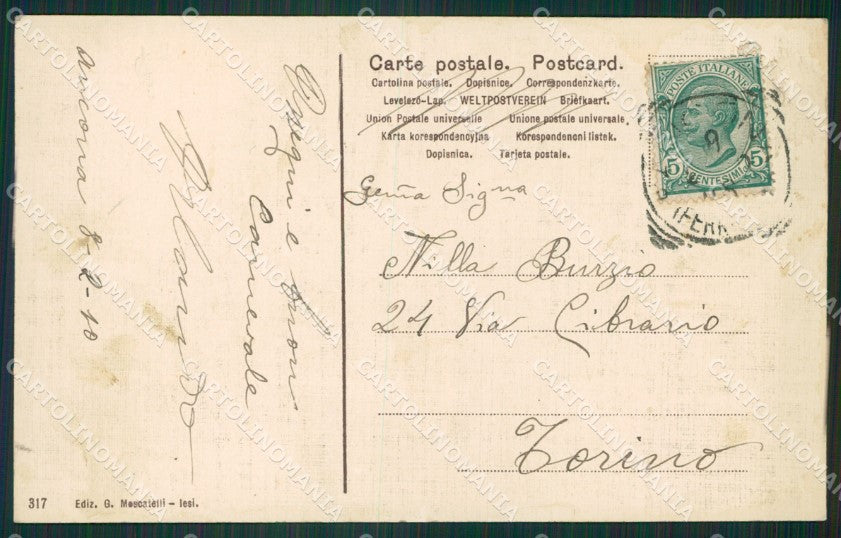 Carte postale. Postcard.
Cartolina postale. Dopisnice. Correspondenzkarte.
Levelező-Lap. WELTPOSTVEREIN Briefkaart.
Union Postale universelle Unione postale universale,
Karta korespondencyjna Korespondencni listek.
Dopisnica. Tarjeta postale.
POSTE ITALIANE
5 5
CENTESIMI
(FERR
Ancona 8-2-10
Ossequi e buon
Carnevale
Gema Signa
Nilla Burzio
24 Via Cibrario
Torino
317 Ediz. G. Moscatelli - Iesi.
CARTOLINOMANIA